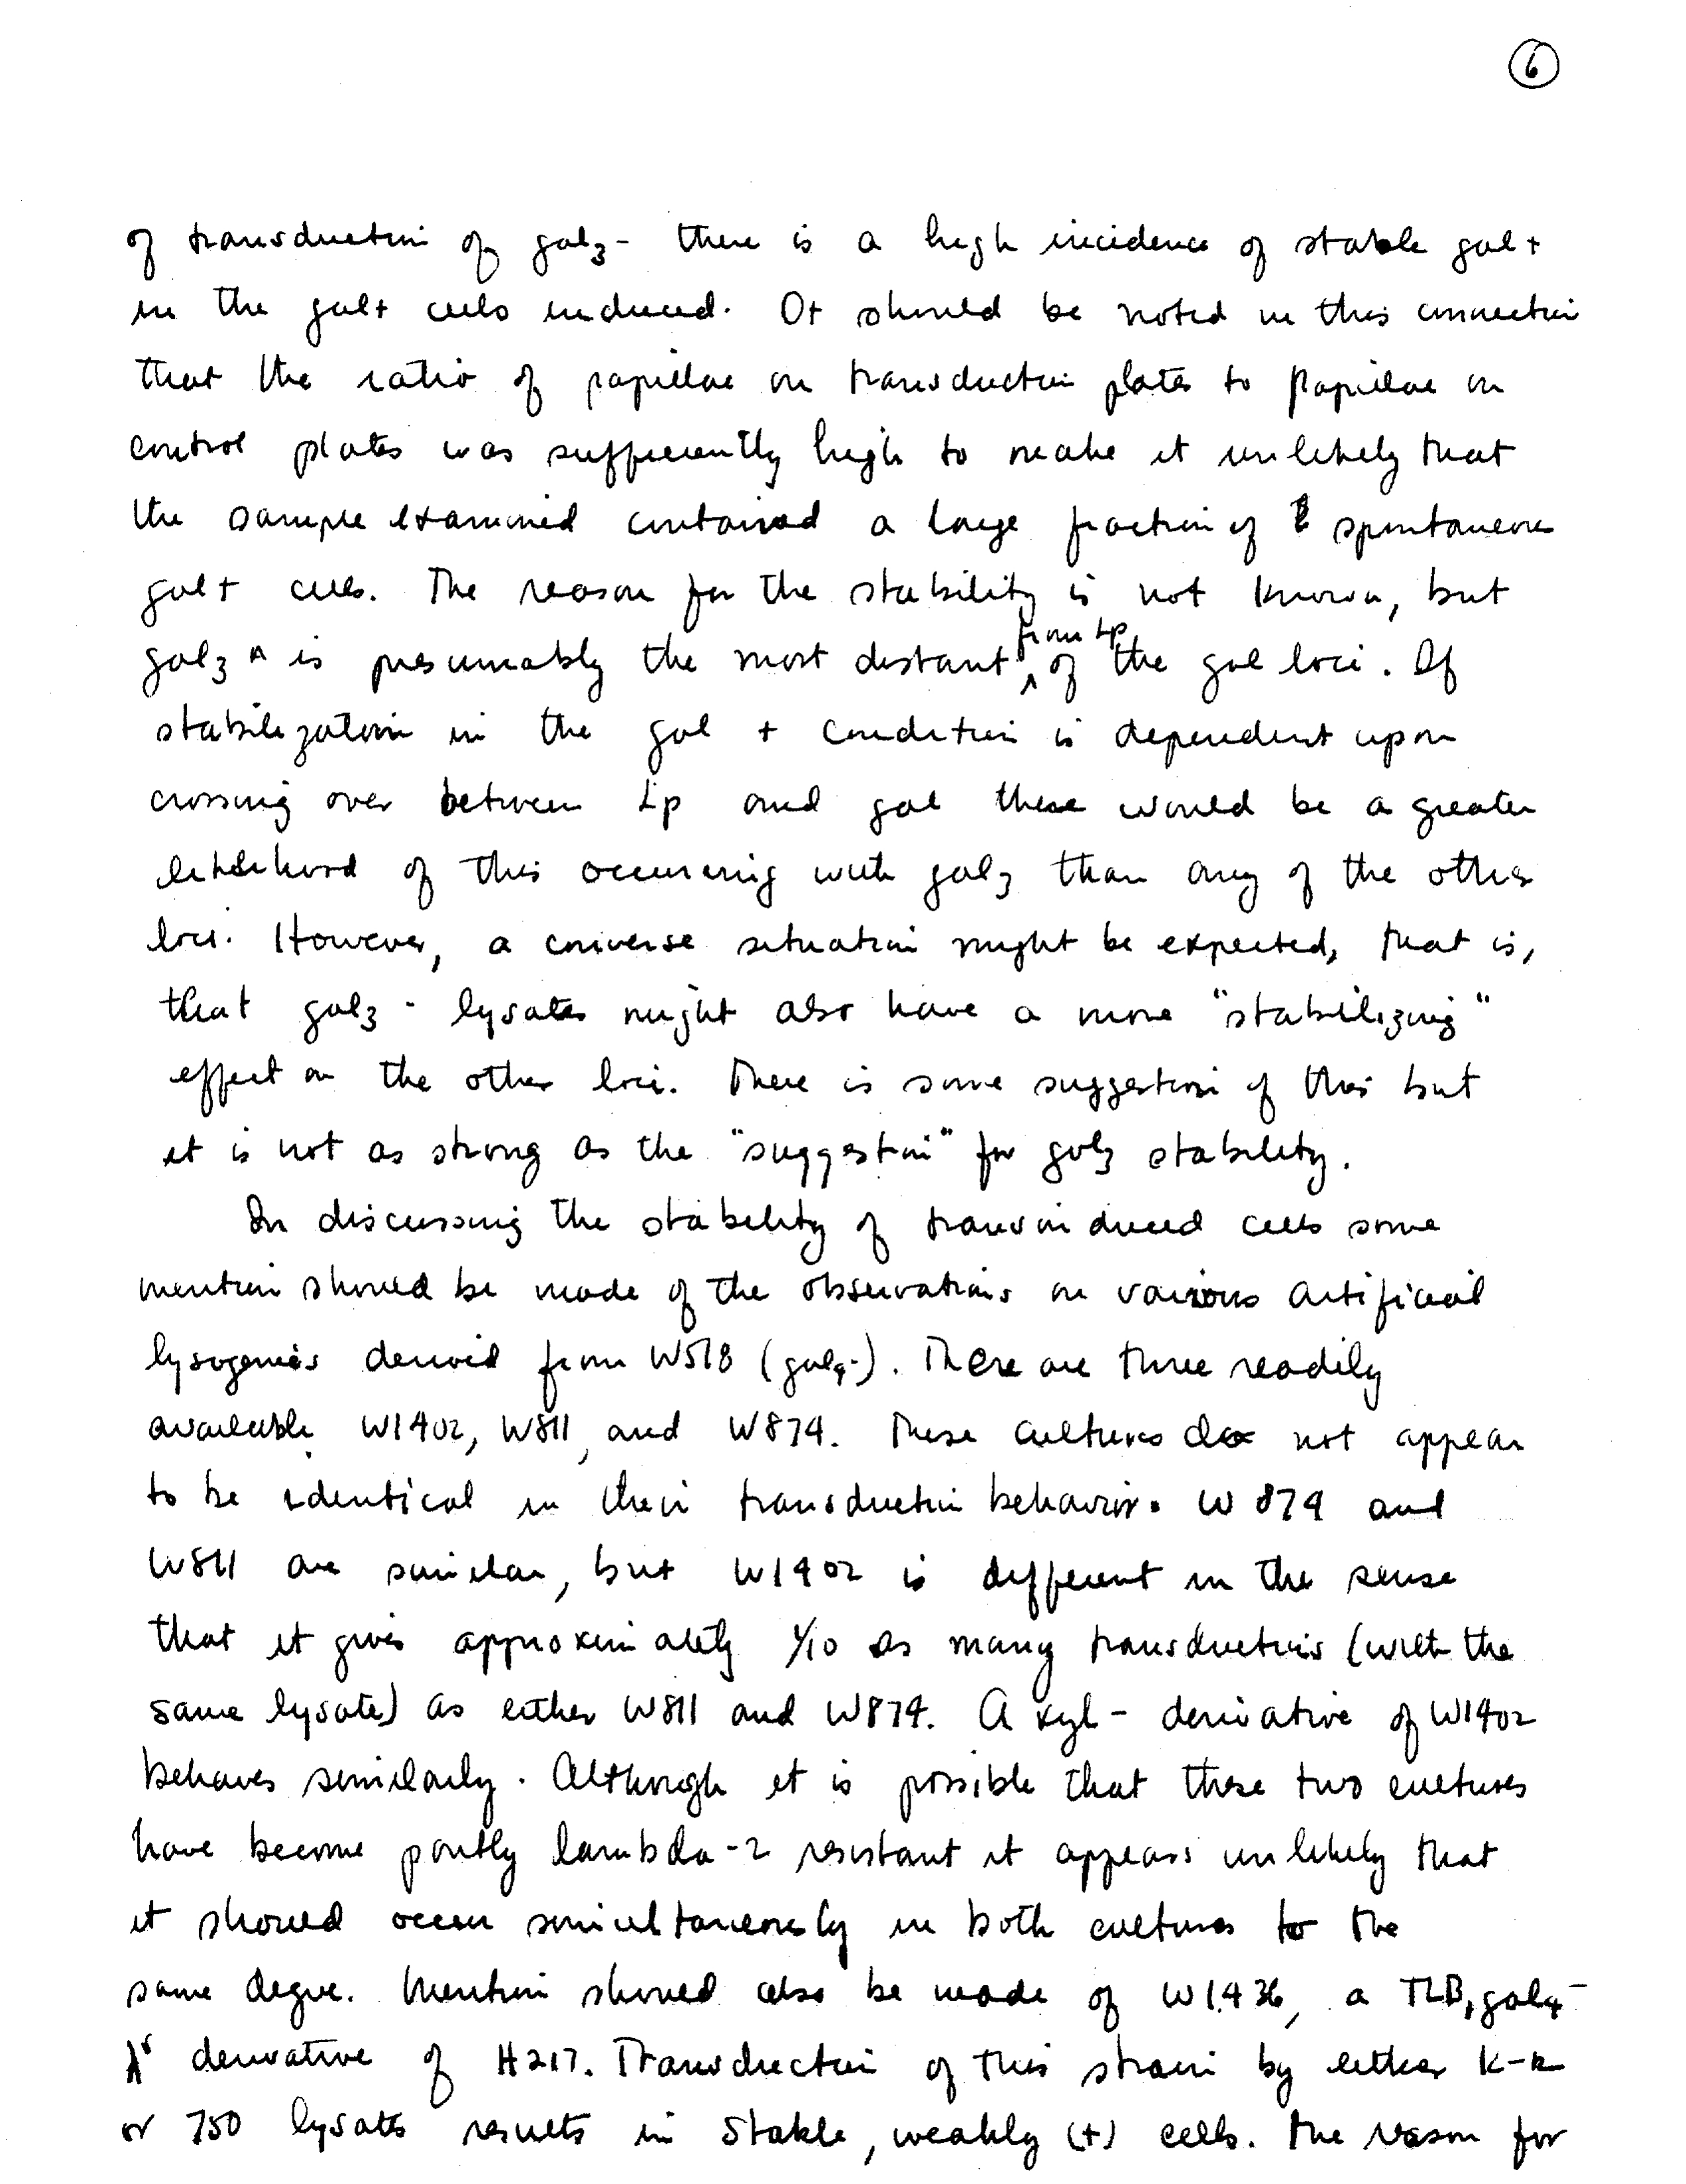 6
of transduction of gal3- there is a high incidence of stable gal+
in the gal+ cells induced. It should be noted in this connection
that the ratio of papillae on transduction plates to papillae on
control plates was sufficiently high to make it unlikely that
the sample examined contained a large fraction of spontaneous
gal+ cells. The reason for the stability is not known, but
gal3 is presumably the most distant from Lp of the gal loci. If
stabilization in the gal + condition is dependent upon
crossing over between Lp and gal there would be a greater
likelihood of this occurering with gal3 than any of the other
loci. However, a converse situation might be expected, that is,
that gal3 - lysates might also have a more "stabilizing"
effect on the other loci. There is some suggestion of this but
it is not as strong as the "suggestion" for gal3 stability.
In discussing the stability of transinduced cells some
mention should be made of the observations on various artificial
lysogenics derived from W518 (gal4-). There are three readily
available W1402, W811, and W874. These cultures do not appear
to be identical in their transduction behavior. W 874 and
W811 are similar, but W1402 is different in the sense
that it gives approximately 1/10 as many transductions (with the
same lysate) as either W811 and W874. A xyl- derivative of W1402
behaves similarly. Although it is possible that these two cultures
have become partly lambda-2 resistant it appears unlikely that
it should occur simultaneously in both cultures to the
same degree. Mention should also be made of W1436, a TLB1 gal4-
λs derivative of H217. Transduction of this strain by either K-12
or 750 lysates results in stable, weakly (+) cells. The reason for